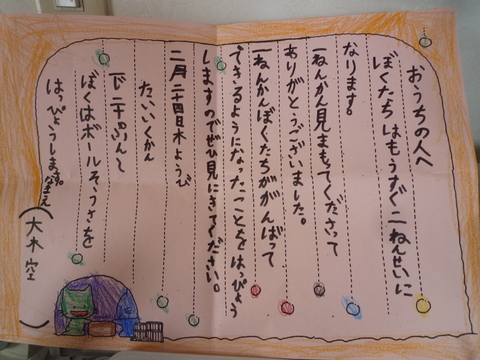 おうちの人へ
ぼくたちはもうすぐ二ねんせいに
なります。
一ねんかん見まもてくださって
ありがとうございました。
一ねんかんぼくたちががんばって
できるようになったことをはっぴょう
しますのでぜひ見にきてください。
二月二十四日木ようび
たいいくかん
一じ二十ぷん〜
ぼくはボールそうさを
はっぴょうします。
なまえ
(大木空)